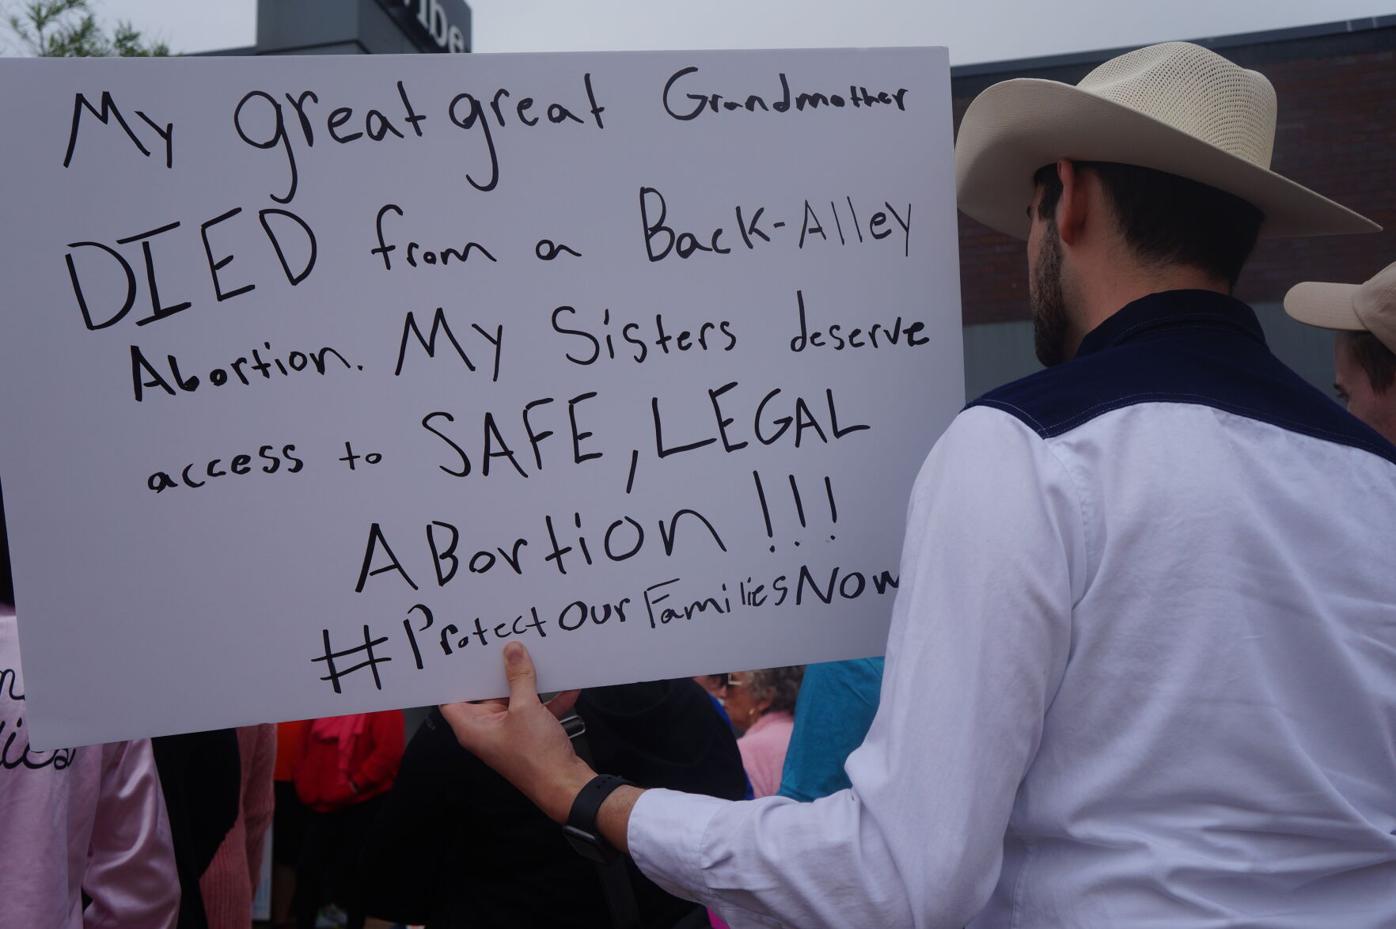 My great great Grandmother
DIED from a Back-Alley
Abortion. My Sisters deserve
access to SAFE, LEGAL
ABortion!!!
#ProtectOurFamiliesNow